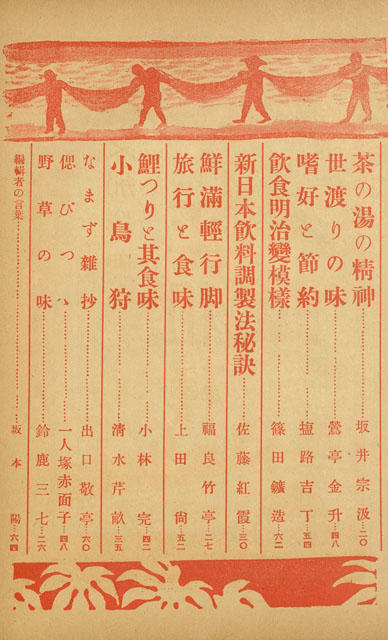 茶の湯の精神……坂井宗汲…二〇
世渡りの味……鶯亭金升…四八
嗜好と節約……塩路吉丁…五四
飲食明治變模樣……篠田鑛造…六二
新日本飲料調製法秘訣……佐藤紅霞…三〇
鮮滿輕行脚……福良竹亭…二七
旅行と食味……上田尙…五二
鯉つりと其食味……小林完…四二
小鳥狩……淸水芹畝…三五
なまず雜抄……出口敬亭…六〇
偲びつゝ……一人塚赤面子…四八
野草の味……鈴鹿三七…二六
編輯者の言葉……坂本陽…六四